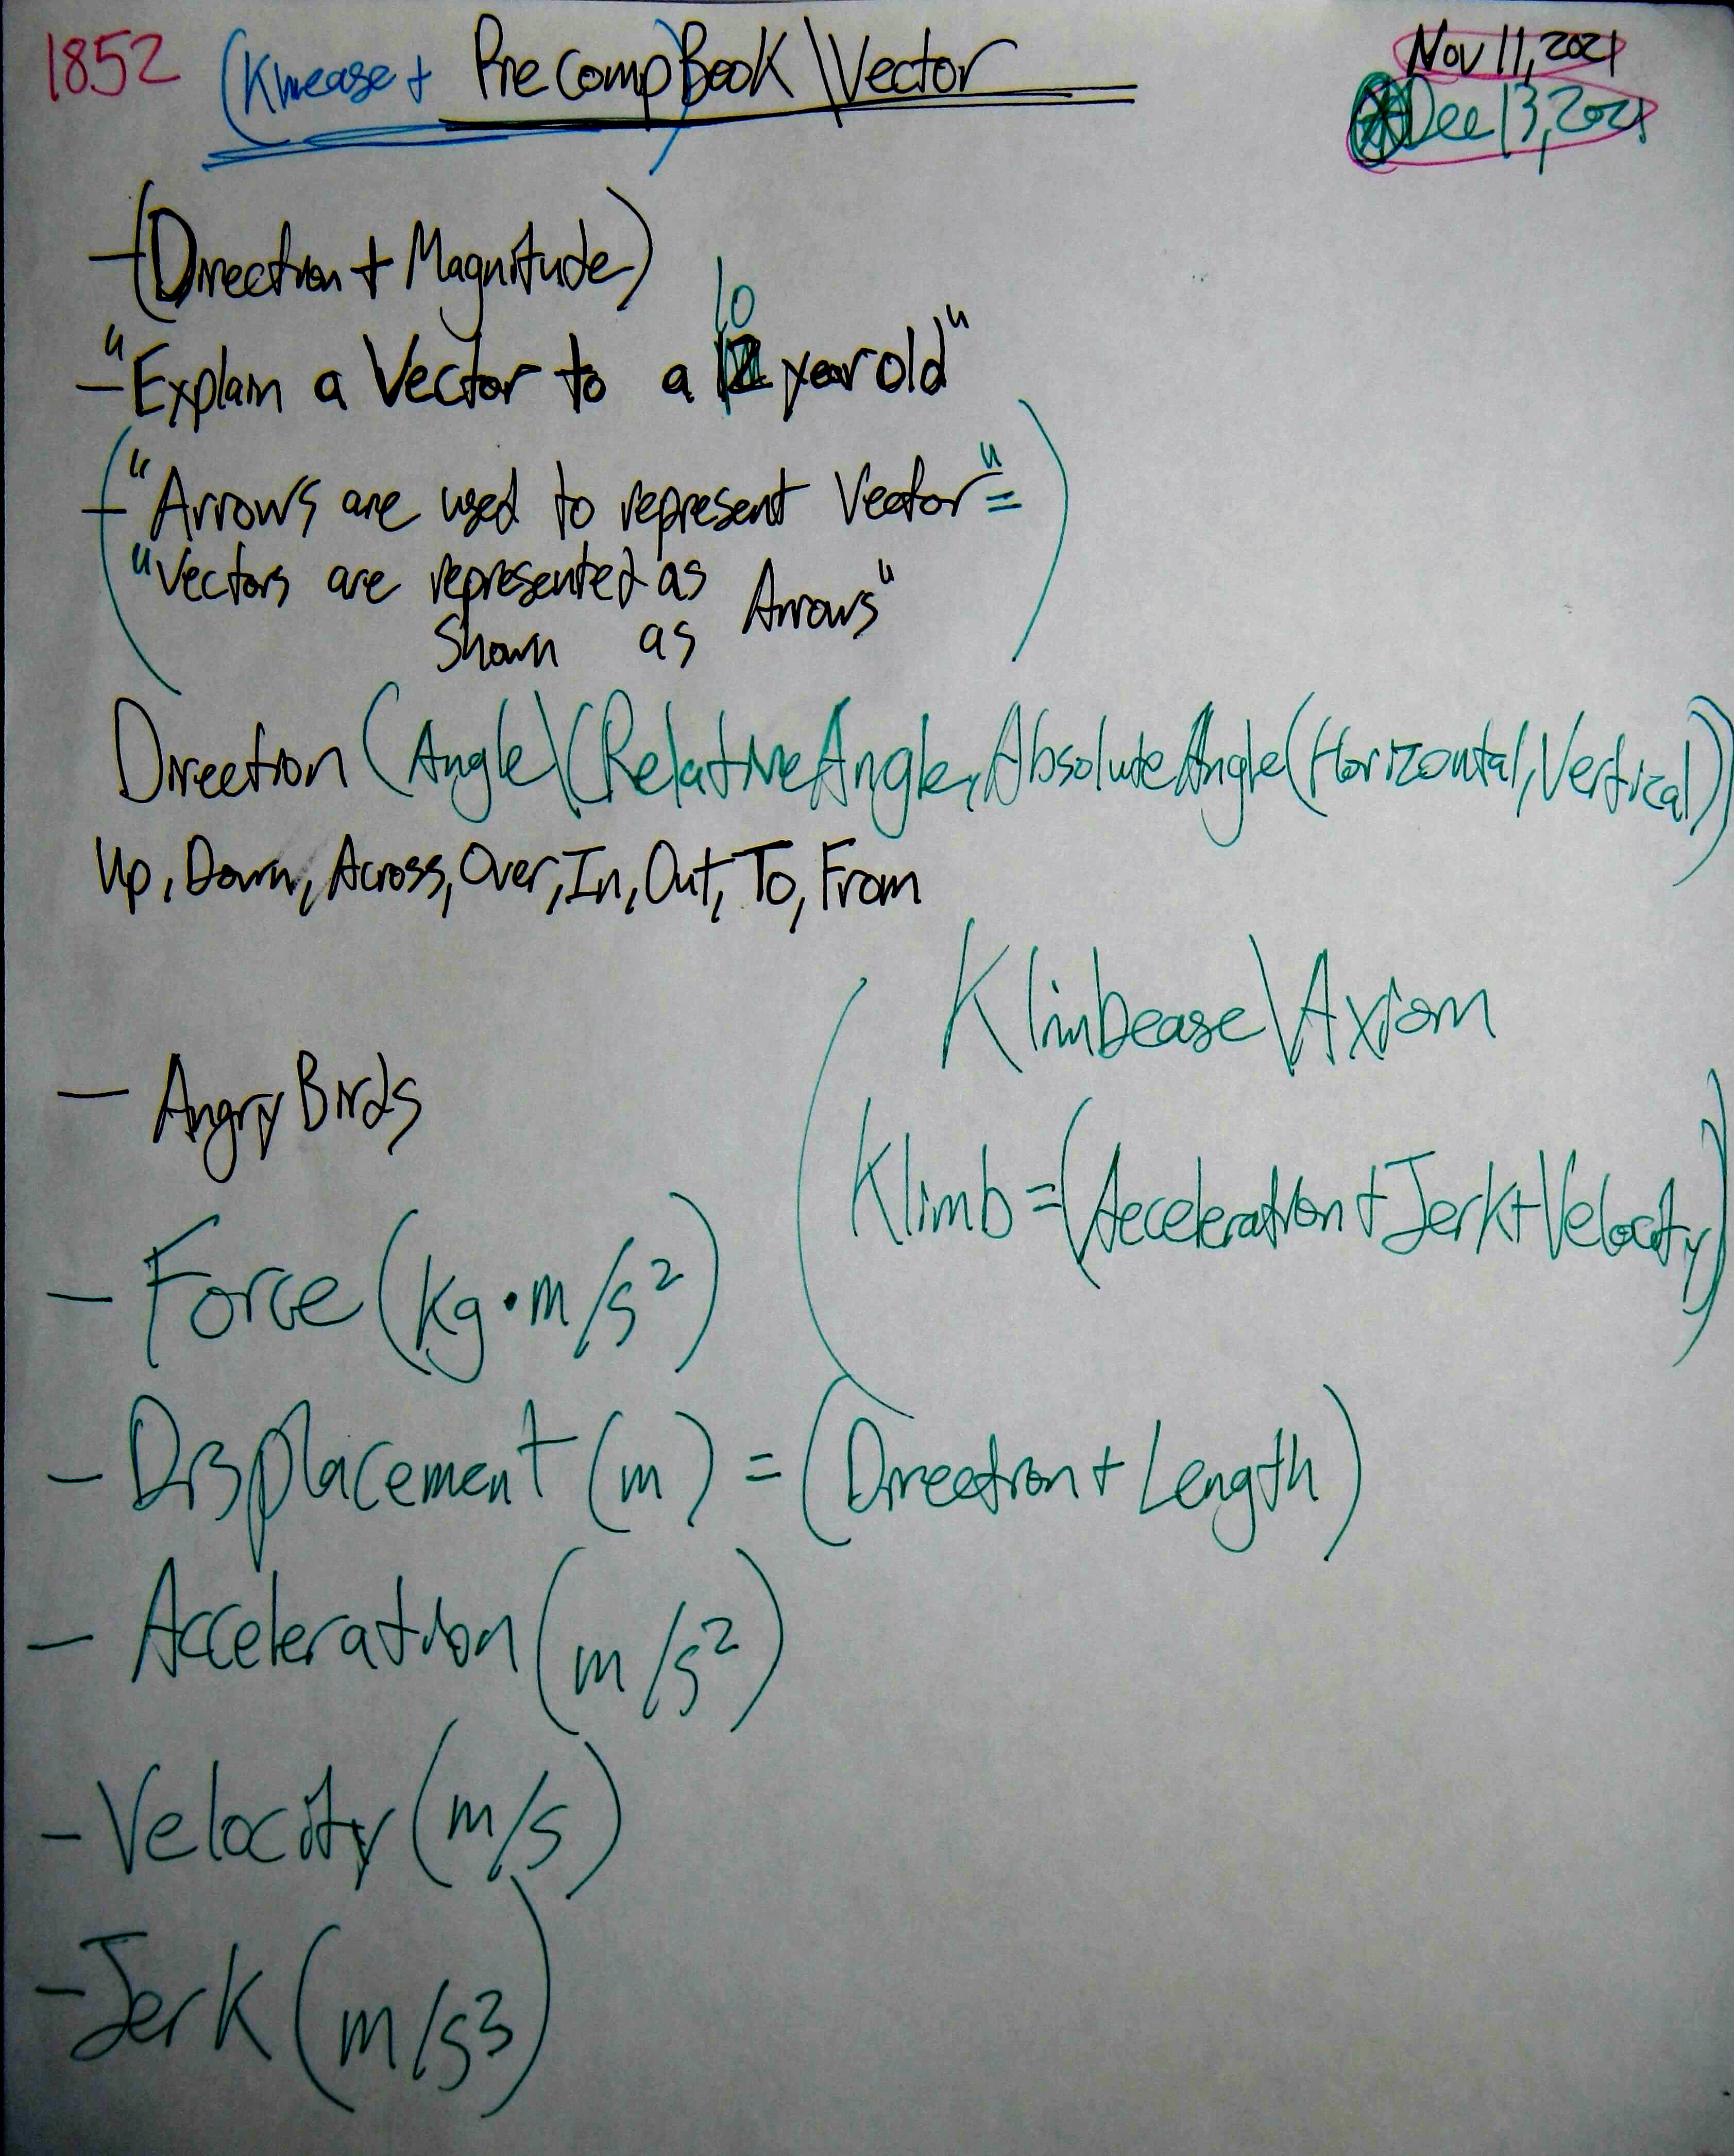 1852 (Khrease + PreComp)Book\Vector
Nov 11, 2021
Dec 13, 2021
-(Direction + Magnitude)
10
-"Explain a Vector to a year old"
-("Arrows are used to represent Vector" =
"Vectors are represented as Arrows")
Shown as
Direction (Angle\(RelativeAngle, AbsoluteAngle(Horizontal, Vertical))
Up, Down, Across, Over, In, Out, To, From
(Klimbease\Axiom
- Angry Birds
Klimb = (Acceleration + Jerk + Velocity)
- Force (kg·m/s²)
- Displacement (m) = (Direction + Length)
- Acceleration (m/s²)
- Velocity (m/s)
- Jerk (m/s³)